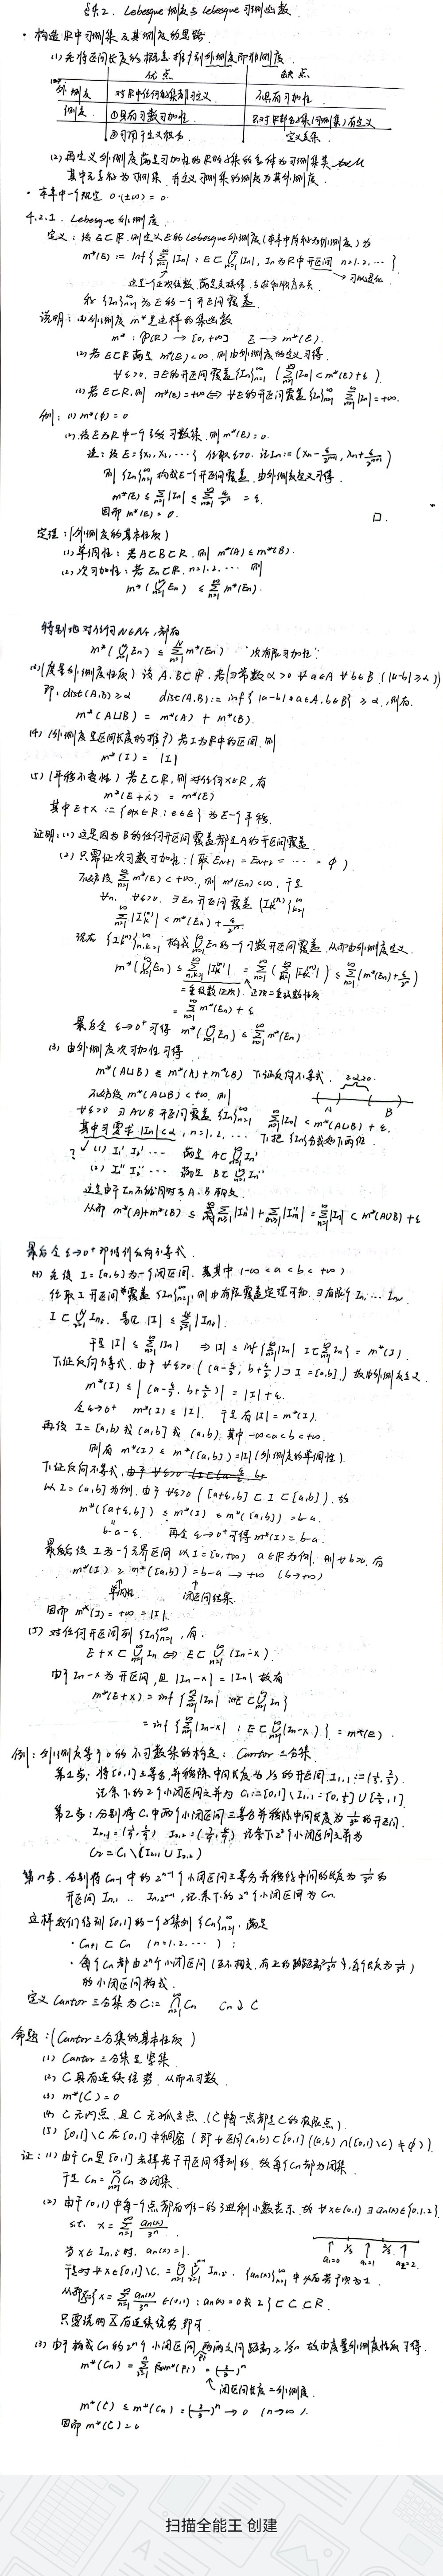 §4.2. Lebesgue 测度与 Lebesgue 可测函数.
· 构造 R中可测集及其测度的思路
(1) 先将区间长度的概念推广到外测度即非测度
优点 缺点
外测度 对R中任何子集都可定义 不具有可加性
测度 ①具有可数可加性 只对R部分子集(可测集)有定义
②可用于定义积分 定义复杂
(2) 再定义外测度满足可加性的R的子集的全体为可测集类
其中元素称为可测集, 并定义可测集的测度为其外测度.
· 本章中一个规定 0·(±∞) = 0.
4.2.1. Lebesgue 外测度.
定义: 设 E⊂R. 则定义E的 Lebesgue 外测度 (本章中简称为外测度) 为
m*(E) := inf{ ∑|In| : E⊂∪In, In为R中开区间 n=1,2,… }
这是个正项级数, 满足交换律, 与求和顺序无关
称 {In} 为E的一个开区间覆盖.
说明: 由外测度 m* 是这样的集函数
m* : P(R) → [0,+∞] E → m*(E).
(2) 若E⊂R满足 m*(E)<∞. 则由外测度的定义可得.
∀ε>0. ∃E的开区间覆盖{In} ( ∑|In| < m*(E)+ε ).
(3) 若E⊂R, 则 m*(E)=+∞ ⇔ ∀E的开区间覆盖{In} ∑|In| = +∞.
例: (1) m*(φ) = 0
(2). 设E为R中一个至多可数集. 则 m*(E)=0.
证: 设 E={x1, x2, …} 任取ε>0. 记In := (xn - ε/2ⁿ⁺¹, xn + ε/2ⁿ⁺¹)
则 {In} 构成E一个开区间覆盖. 由外测度定义可得.
m*(E) ≤ ∑|In| ≤ ∑ ε/2ⁿ = ε.
因而 m*(E) = 0. □.
定理: (外测度的基本性质)
(1) 单调性: 若A⊂B⊂R. 则 m*(A) ≤ m*(B).
(2) 次可加性: 若En⊂R, n=1,2,… 则
m*(∪En) ≤ ∑m*(En).
特别地对任何N∈N+, 都有
m*(∪En) ≤ ∑m*(En) "次有限可加性"
(3) (度量外测度性质) 设A,B⊂R. 若∃常数α>0 ∀a∈A ∀b∈B (|a-b|≥α)
即: dist(A,B)≥α dist(A,B) := inf{|a-b| : a∈A, b∈B} ≥ α, 则有.
m*(A∪B) = m*(A) + m*(B).
(4) (外测度是区间长度的推广) 若I为R中的区间, 则
m*(I) = |I|
(5) (平移不变性) 若E⊂R, 则对任何x∈R, 有
m*(E+x) = m*(E)
其中E+x := {e+x∈R : e∈E} 为E一个平移.
证明: (1) 这是因为B的任何开区间覆盖都是A的开区间覆盖.
(2) 只需证次可数可加性: (取 EN+1 = EN+2 = … = φ)
不妨设 ∑m*(E)<+∞, 则 m*(En)<∞. 于是
∀n, ∀ε>0. ∃En开区间覆盖 {Ik⁽ⁿ⁾}
∑|Ik⁽ⁿ⁾| < m*(En) + ε/2ⁿ.
现在 {Ik⁽ⁿ⁾} 构成∪En的一个可数开区间覆盖. 从而由外测度定义.
m*(∪En) ≤ ∑|Ik⁽ⁿ⁾| = ∑(∑|Ik⁽ⁿ⁾|) ≤ ∑(m*(En)+ε/2ⁿ)
= ∑m*(En) + ε
最后令 ε→0+ 可得 m*(∪En) ≤ ∑m*(En)
(3) 由外测度次可加性可得
m*(A∪B) ≤ m*(A) + m*(B) 下证反向不等式. ≥α>0.
不妨设 m*(A∪B)<+∞. 则 A B
∀ε>0 ∃A∪B 开区间覆盖{In} ∑|In| < m*(A∪B) + ε.
其中可要求 |In|<α, n=1,2,… 下把{In}分成如下两组.
? (1) I1' I2' … 满足 A⊂∪In'
(2) I1'' I2'' … 满足 B⊂∪In''
这是由于In不能同时与A,B相交.
从而 m*(A)+m*(B) ≤ ∑|In'| + ∑|In''| = ∑|In| < m*(A∪B)+ε
最后令 ε→0+ 即得到反向不等式.
(4) 先设 I=[a,b] 为一个闭区间. 其中 (-∞<a<b<+∞)
任取I开区间覆盖{In}, 则由有限覆盖定理可知. ∃有限个 In1 … InN.
I⊂∪Ink. 易见 |I| ≤ ∑|Ink|.
于是 |I| ≤ ∑|In| ⇒ |I| ≤ inf{∑|In| I⊂∪In} = m*(I).
下证反向不等式. 由于 ∀ε>0 ((a-ε/2, b+ε/2)⊃I=[a,b].) 故由外测度定义.
m*(I) ≤ |(a-ε/2, b+ε/2)| = |I|+ε.
令ε→0+ m*(I) ≤ |I|. 于是有|I| = m*(I).
再设 I=[a,b) 或 (a,b] 或 (a,b), 其中 -∞<a<b<+∞.
则有 m*(I) ≤ m*([a,b]) = |I| (外测度的单调性).
下证反向不等式,
以 I=(a,b] 为例. 由于 ∀ε>0 ([a+ε,b]⊂I⊂[a,b]). 故
m*([a+ε,b]) ≤ m*(I) ≤ m*([a,b]) = b-a.
b-a-ε. 再令 ε→0+ 可得 m*(I) = b-a.
最后设 I为一个无界区间 以 I=[a,+∞) a∈R 为例. 则∀b>a. 有
m*(I) ≥ m*([a,b]) = b-a → +∞ (b→+∞)
单调性 闭区间结果.
因而 m*(I) = +∞ = |I|.
(5) 对任何开区间列 {In}, 有.
E+x⊂∪In ⇔ E⊂∪(In-x).
由于In-x为开区间, 且|In-x| = |In| 故有
m*(E+x) = inf{∑|In| : E+x⊂∪In}
= inf{∑|In-x| : E⊂∪(In-x)} = m*(E).
例: 外测度等于0的不可数集的构造: Cantor 三分集.
第1步: 将[0,1]三等分并移除中间长度为1/3的开区间. I1,1 := (1/3, 2/3).
记余下的2个小闭区间之并为 C1 := [0,1]\I1,1 = [0,1/3]∪[2/3,1]
第2步: 分别将C1中两个小闭区间三等分并移除中间长度为1/3²的开区间.
I2,1 = (1/9, 2/9) I2,2 = (7/9, 8/9) 记余下2²个小闭区间之并为
C2 = C1\(I2,1∪I2,2)
第n步. 分别将Cn-1中的2ⁿ⁻¹个小闭区间三等分并移除中间的长度为1/3ⁿ的
开区间 In,1 … In,2ⁿ⁻¹, 记余下的2ⁿ个小闭区间为Cn.
这样我们得到[0,1]的一个子集列{Cn}, 满足
· Cn+1⊂Cn (n=1,2,…);
· 每个Cn都由2ⁿ个小闭区间 (互不相交. 每个长为1/3ⁿ)
的小闭区间构成.
定义Cantor三分集为 C := ∩Cn Cn↓C
命题: (Cantor三分集的基本性质)
(1) Cantor三分集是紧集.
(2) C具有连续统势. 从而不可数.
(3) m*(C) = 0
(4) C无内点. 且C无孤立点. (C中每一点都是C的聚点).
(5) [0,1]\C在[0,1]中稠密 (即∀区间(a,b)⊂[0,1] ((a,b)∩([0,1]\C)≠φ)).
证: (1) 由于Cn是[0,1]去掉若干开区间得到的. 故每个Cn都为闭集.
于是 C = ∩Cn 为闭集.
(2) 由于(0,1)中每一个点都有唯一的3进制小数表示. 故 ∀x∈(0,1) ∃an(x)∈{0,1,2}
s.t. x = ∑ an(x)/3ⁿ.
当x∈In,i时. an(x)=1.
于是对∀x∈[0,1]\C = ∪∪In,i. {an(x)}中必有若干项为1.
从而 {x = ∑ an(x)/3ⁿ ∈(0,1) : an(x)=0或2} ⊂C⊂R.
只需说明 有连续统势即可.
(3) 由于构成Cn的2ⁿ个小闭区间两两之间距离≥1/3ⁿ 故由度量外测度性质可得.
m*(Cn) = ∑m*(Pi) = (2/3)ⁿ
闭区间长度=外测度.
m*(C) ≤ m*(Cn) = (2/3)ⁿ → 0 (n→∞).
因而 m*(C) = 0
扫描全能王 创建